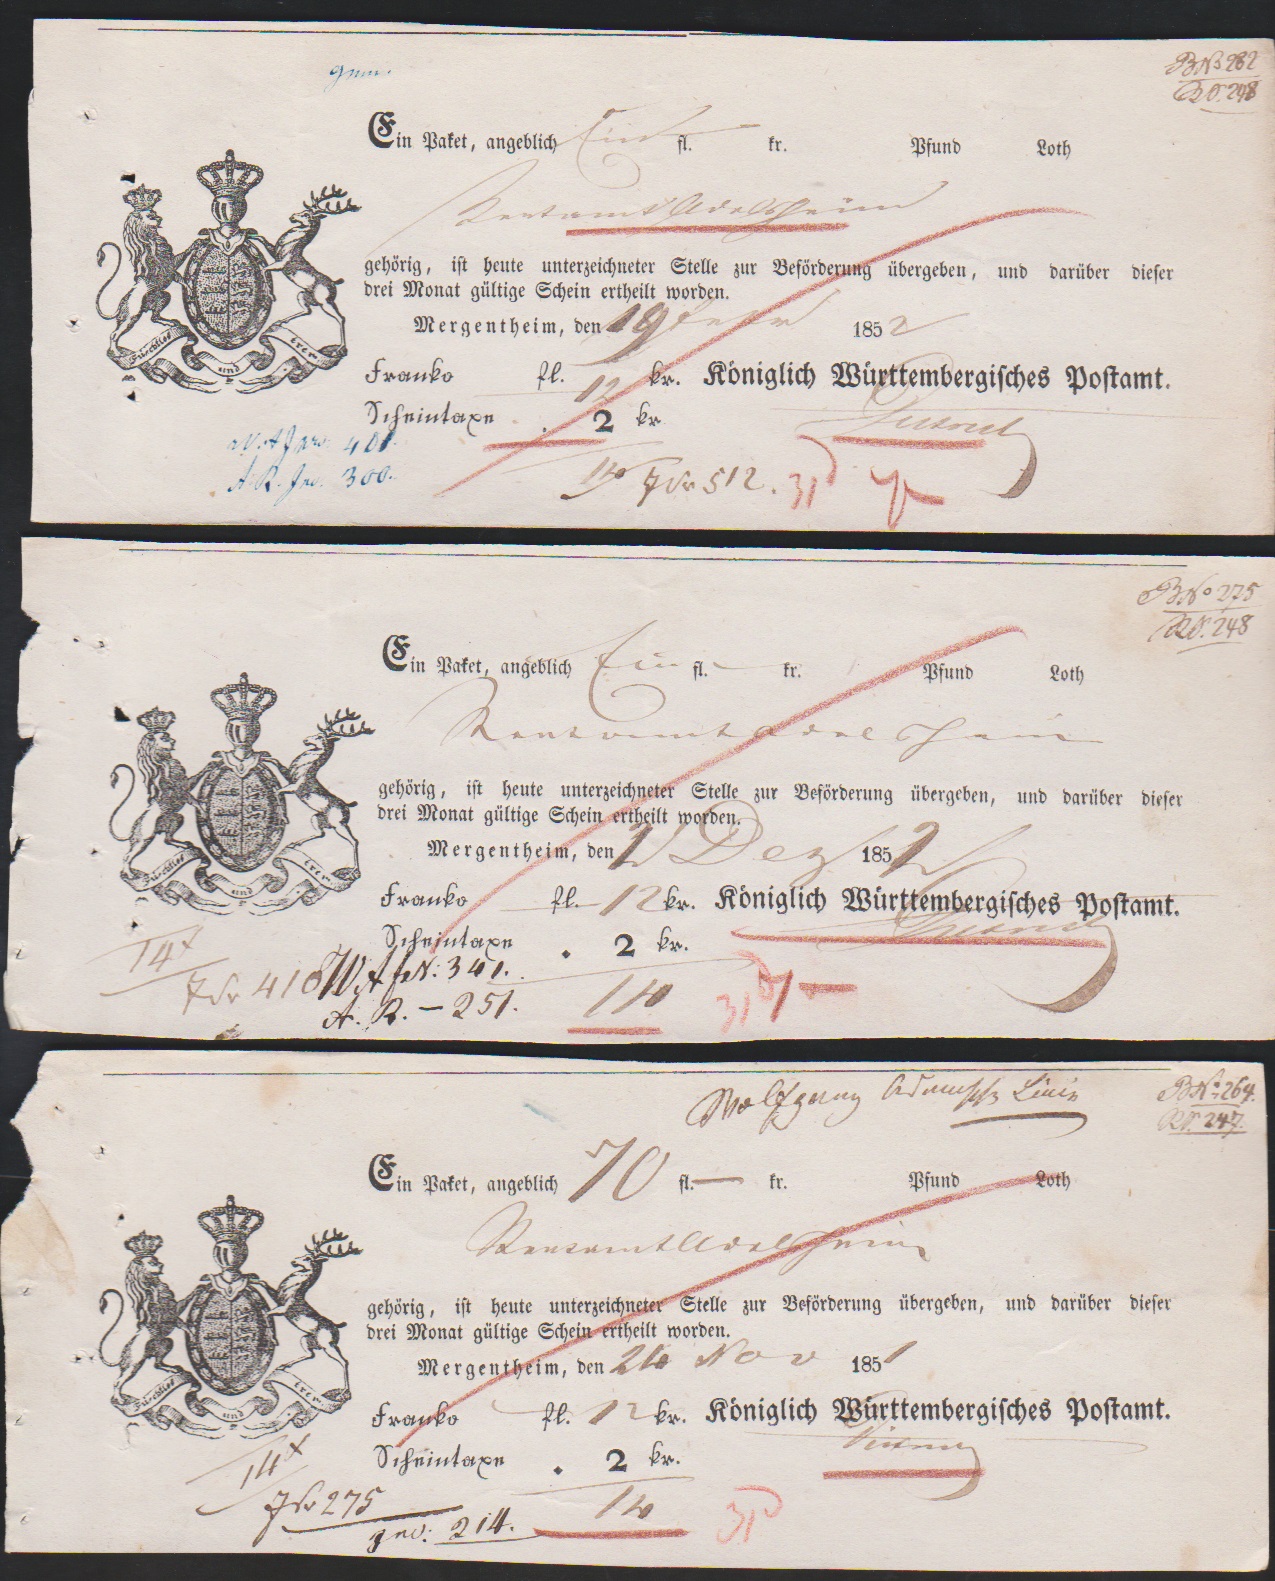 BNo 282
RS. 248
Ein Paket, angeblich Ein fl. kr. Pfund Loth
Rentamt Adelsheim
gehörig, ist heute unterzeichneter Stelle zur Beförderung übergeben, und darüber dieser
drei Monat gültige Schein ertheilt worden.
Mergentheim, den 19 1852
Franko fl. 12 kr. Königlich Württembergisches Postamt.
Scheintaxe . 2 kr.
401.
A. R. 300.
14 512.
Furchtlos und trew
BNo 275
RS. 248
Ein Paket, angeblich Ein fl. — kr. Pfund Loth
Rentamt Adelsheim
gehörig, ist heute unterzeichneter Stelle zur Beförderung übergeben, und darüber dieser
drei Monat gültige Schein ertheilt worden.
Mergentheim, den 2 Dez 1852
Franko fl. 12 kr. Königlich Württembergisches Postamt.
Scheintaxe . 2 kr.
14 x
341.
A. R. — 251.
14
Furchtlos und trew
BNo 264.
RS. 247.
Wolfgang
Ein Paket, angeblich 70 fl. — kr. Pfund Loth
Rentamt Adelsheim
gehörig, ist heute unterzeichneter Stelle zur Beförderung übergeben, und darüber dieser
drei Monat gültige Schein ertheilt worden.
Mergentheim, den 24 Nov 1851
Franko fl. 12 kr. Königlich Württembergisches Postamt.
Scheintaxe . 2 kr.
14 x
14
275
214.
Furchtlos und trew